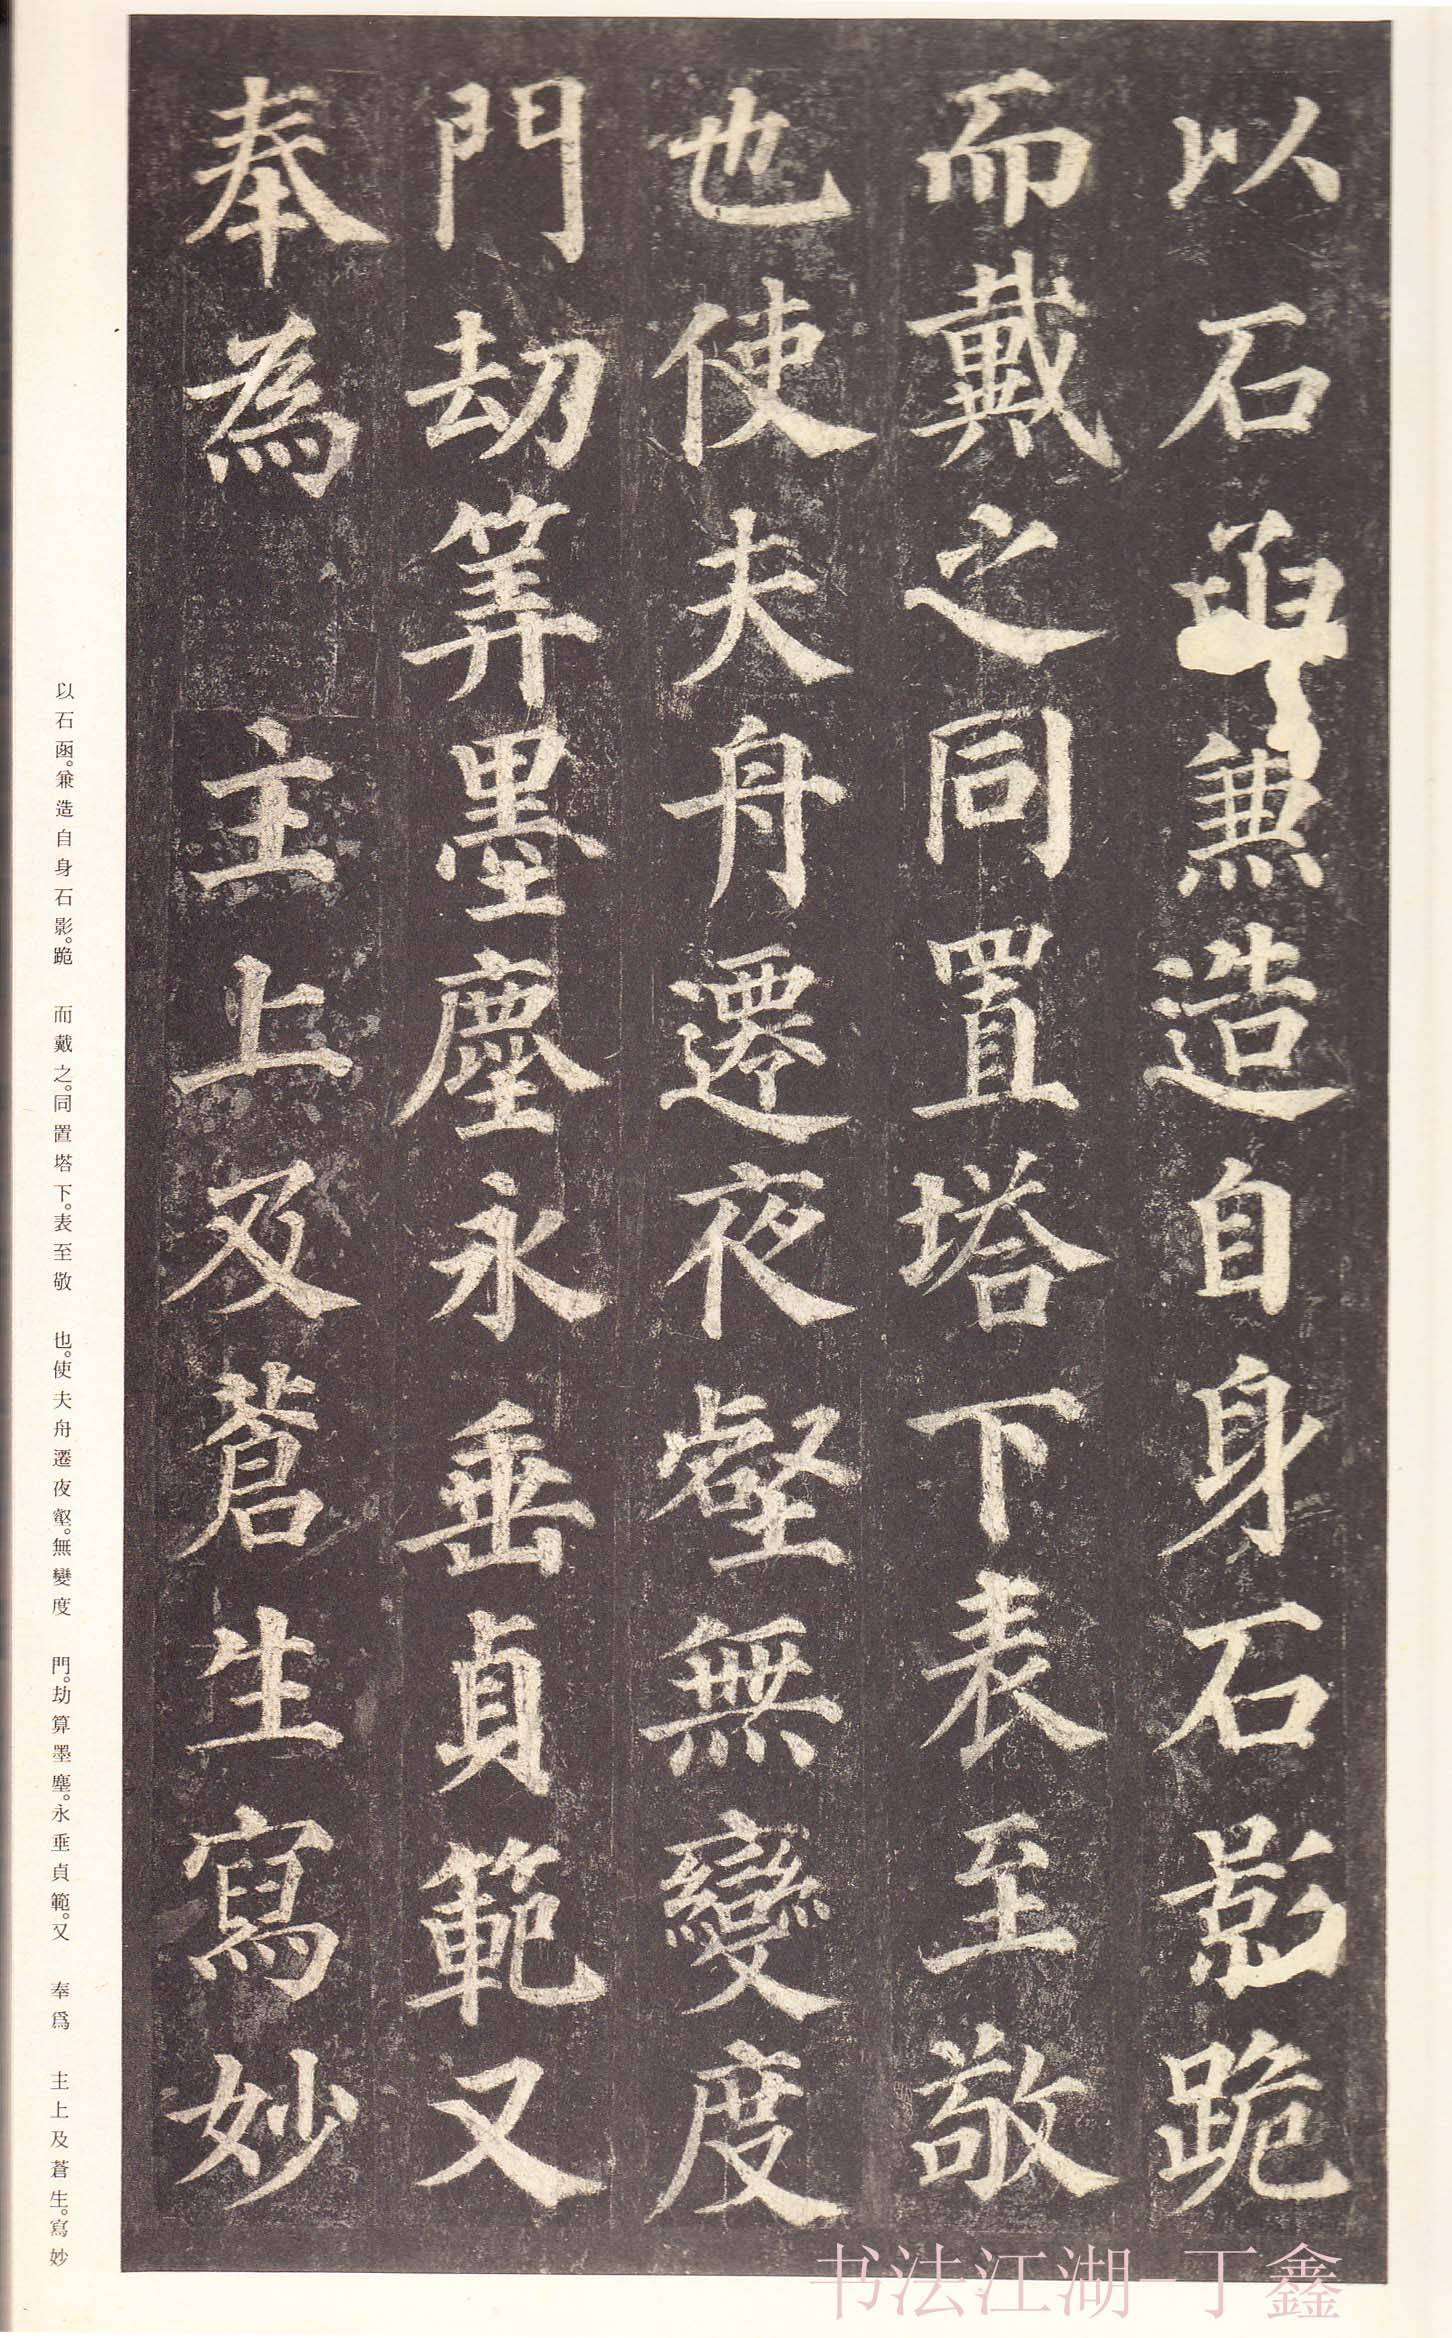 以石函兼造自身石影跪
而戴之同置塔下表至敬
也使夫舟遷夜壑無變度
門劫筭墨塵永垂貞範又
奉為 主上及蒼生寫妙
以石函。兼造自身石影。跪 而戴之。同置塔下。表至敬 也。使夫舟遷夜壑。無變度 門。劫算墨塵。永垂貞範。又 奉爲 主上及蒼生。寫妙
书法江湖-丁鑫